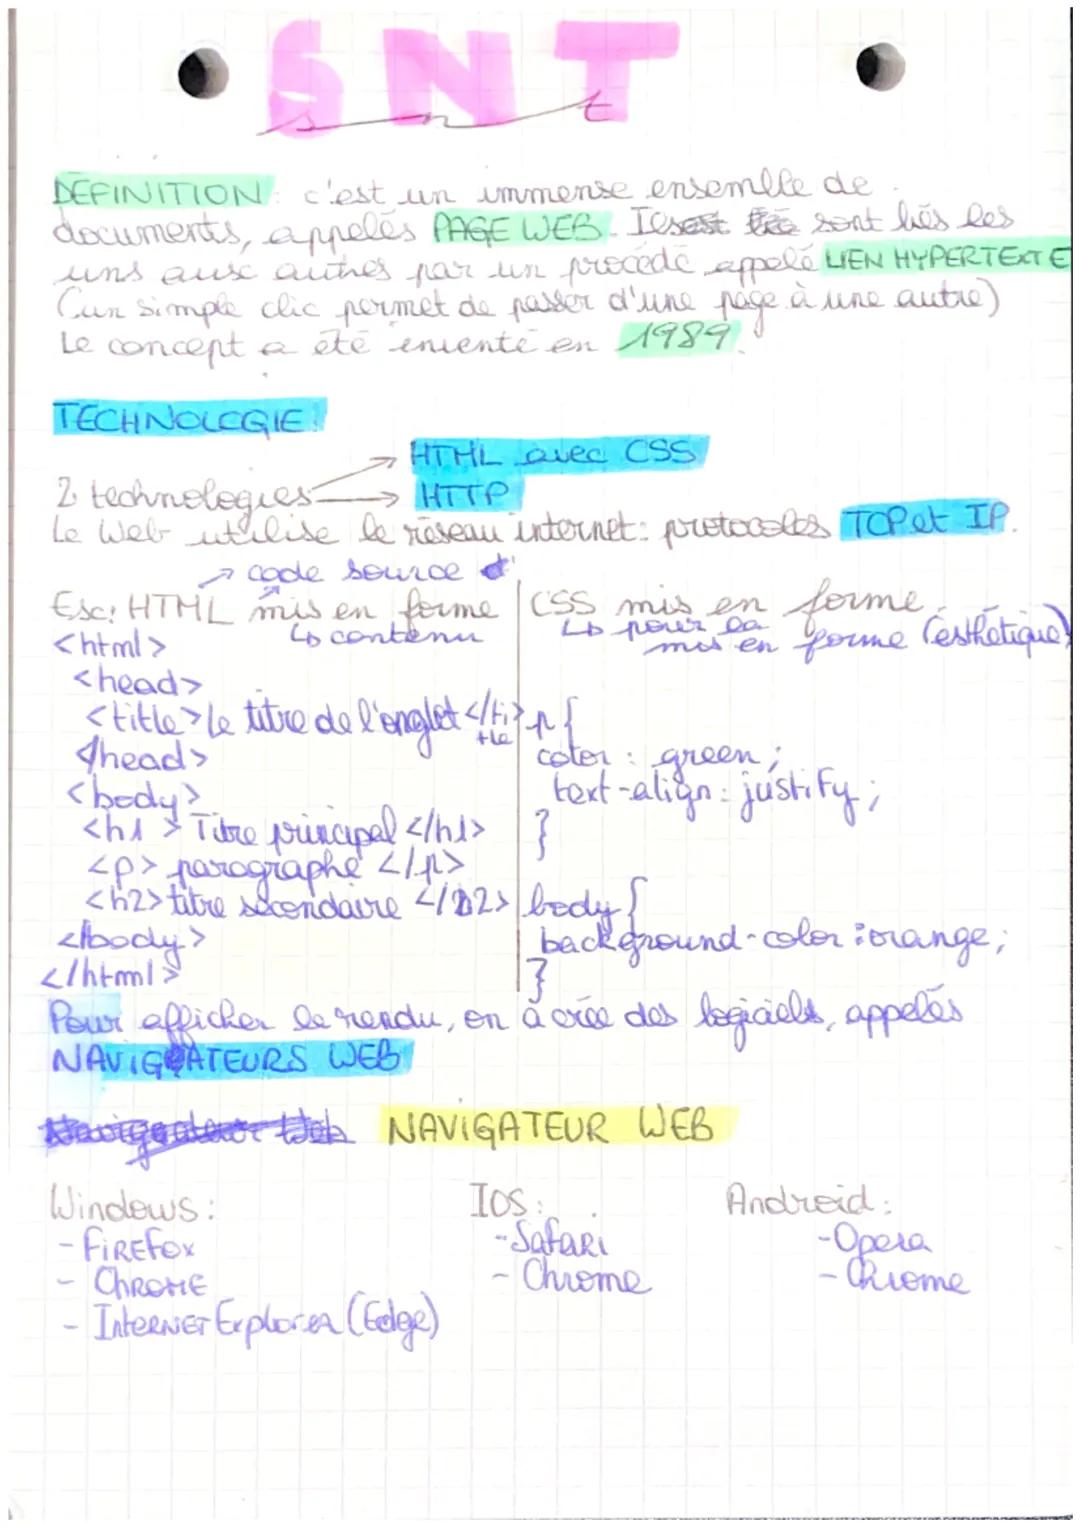 SNT
snt
DEFINITION: c'est un immense ensemble de
documents, appelés PAGE WEB. Ils sont liés les
uns aux autres par un procédé appelé LIEN HYPERTEXTE
(un simple clic permet de passer d'une page à une autre)
Le concept a été inventé en 1989.
TECHNOLOGIE:
2 technologies → HTML avec CSS
→ HTTP
Le Web utilise le réseau internet: protocoles TCP et IP.
→ code source
Ex: HTML mis en forme
↳ contenu
<html>
<head>
<title> le titre de l'onglet </title>
</head>
<body>
<h1> Titre principal </h1>
<p> paragraphe </p>
<h2> titre secondaire </h2>
</body>
</html>
CSS mis en forme
↳ pour la
mis en forme (esthétique)
p{
color: green;
text-align: justify;
}
body{
background-color: orange;
}
Pour afficher le rendu, on a crée des logiciels, appelés
NAVIGATEURS WEB
Navigateur Web NAVIGATEUR WEB
Windows:
- FIREFOX
- CHROME
- INTERNET Explorer (Edge)
IOS:
- Safari
- Chrome
Android:
- Opera
- Chrome